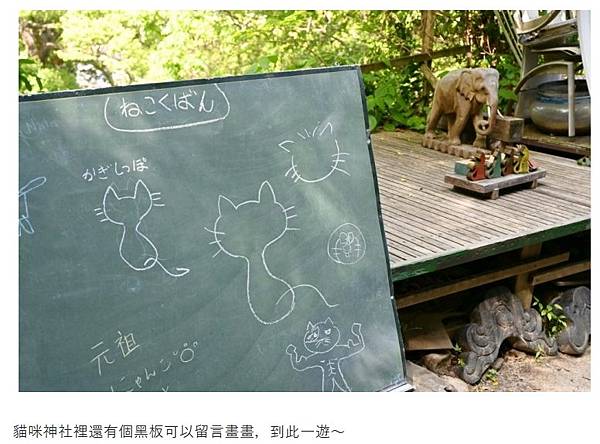 ねこくばん
かぎしっぽ
元祖
にゃんこ
貓咪神社裡還有個黑板可以留言畫畫，到此一遊～